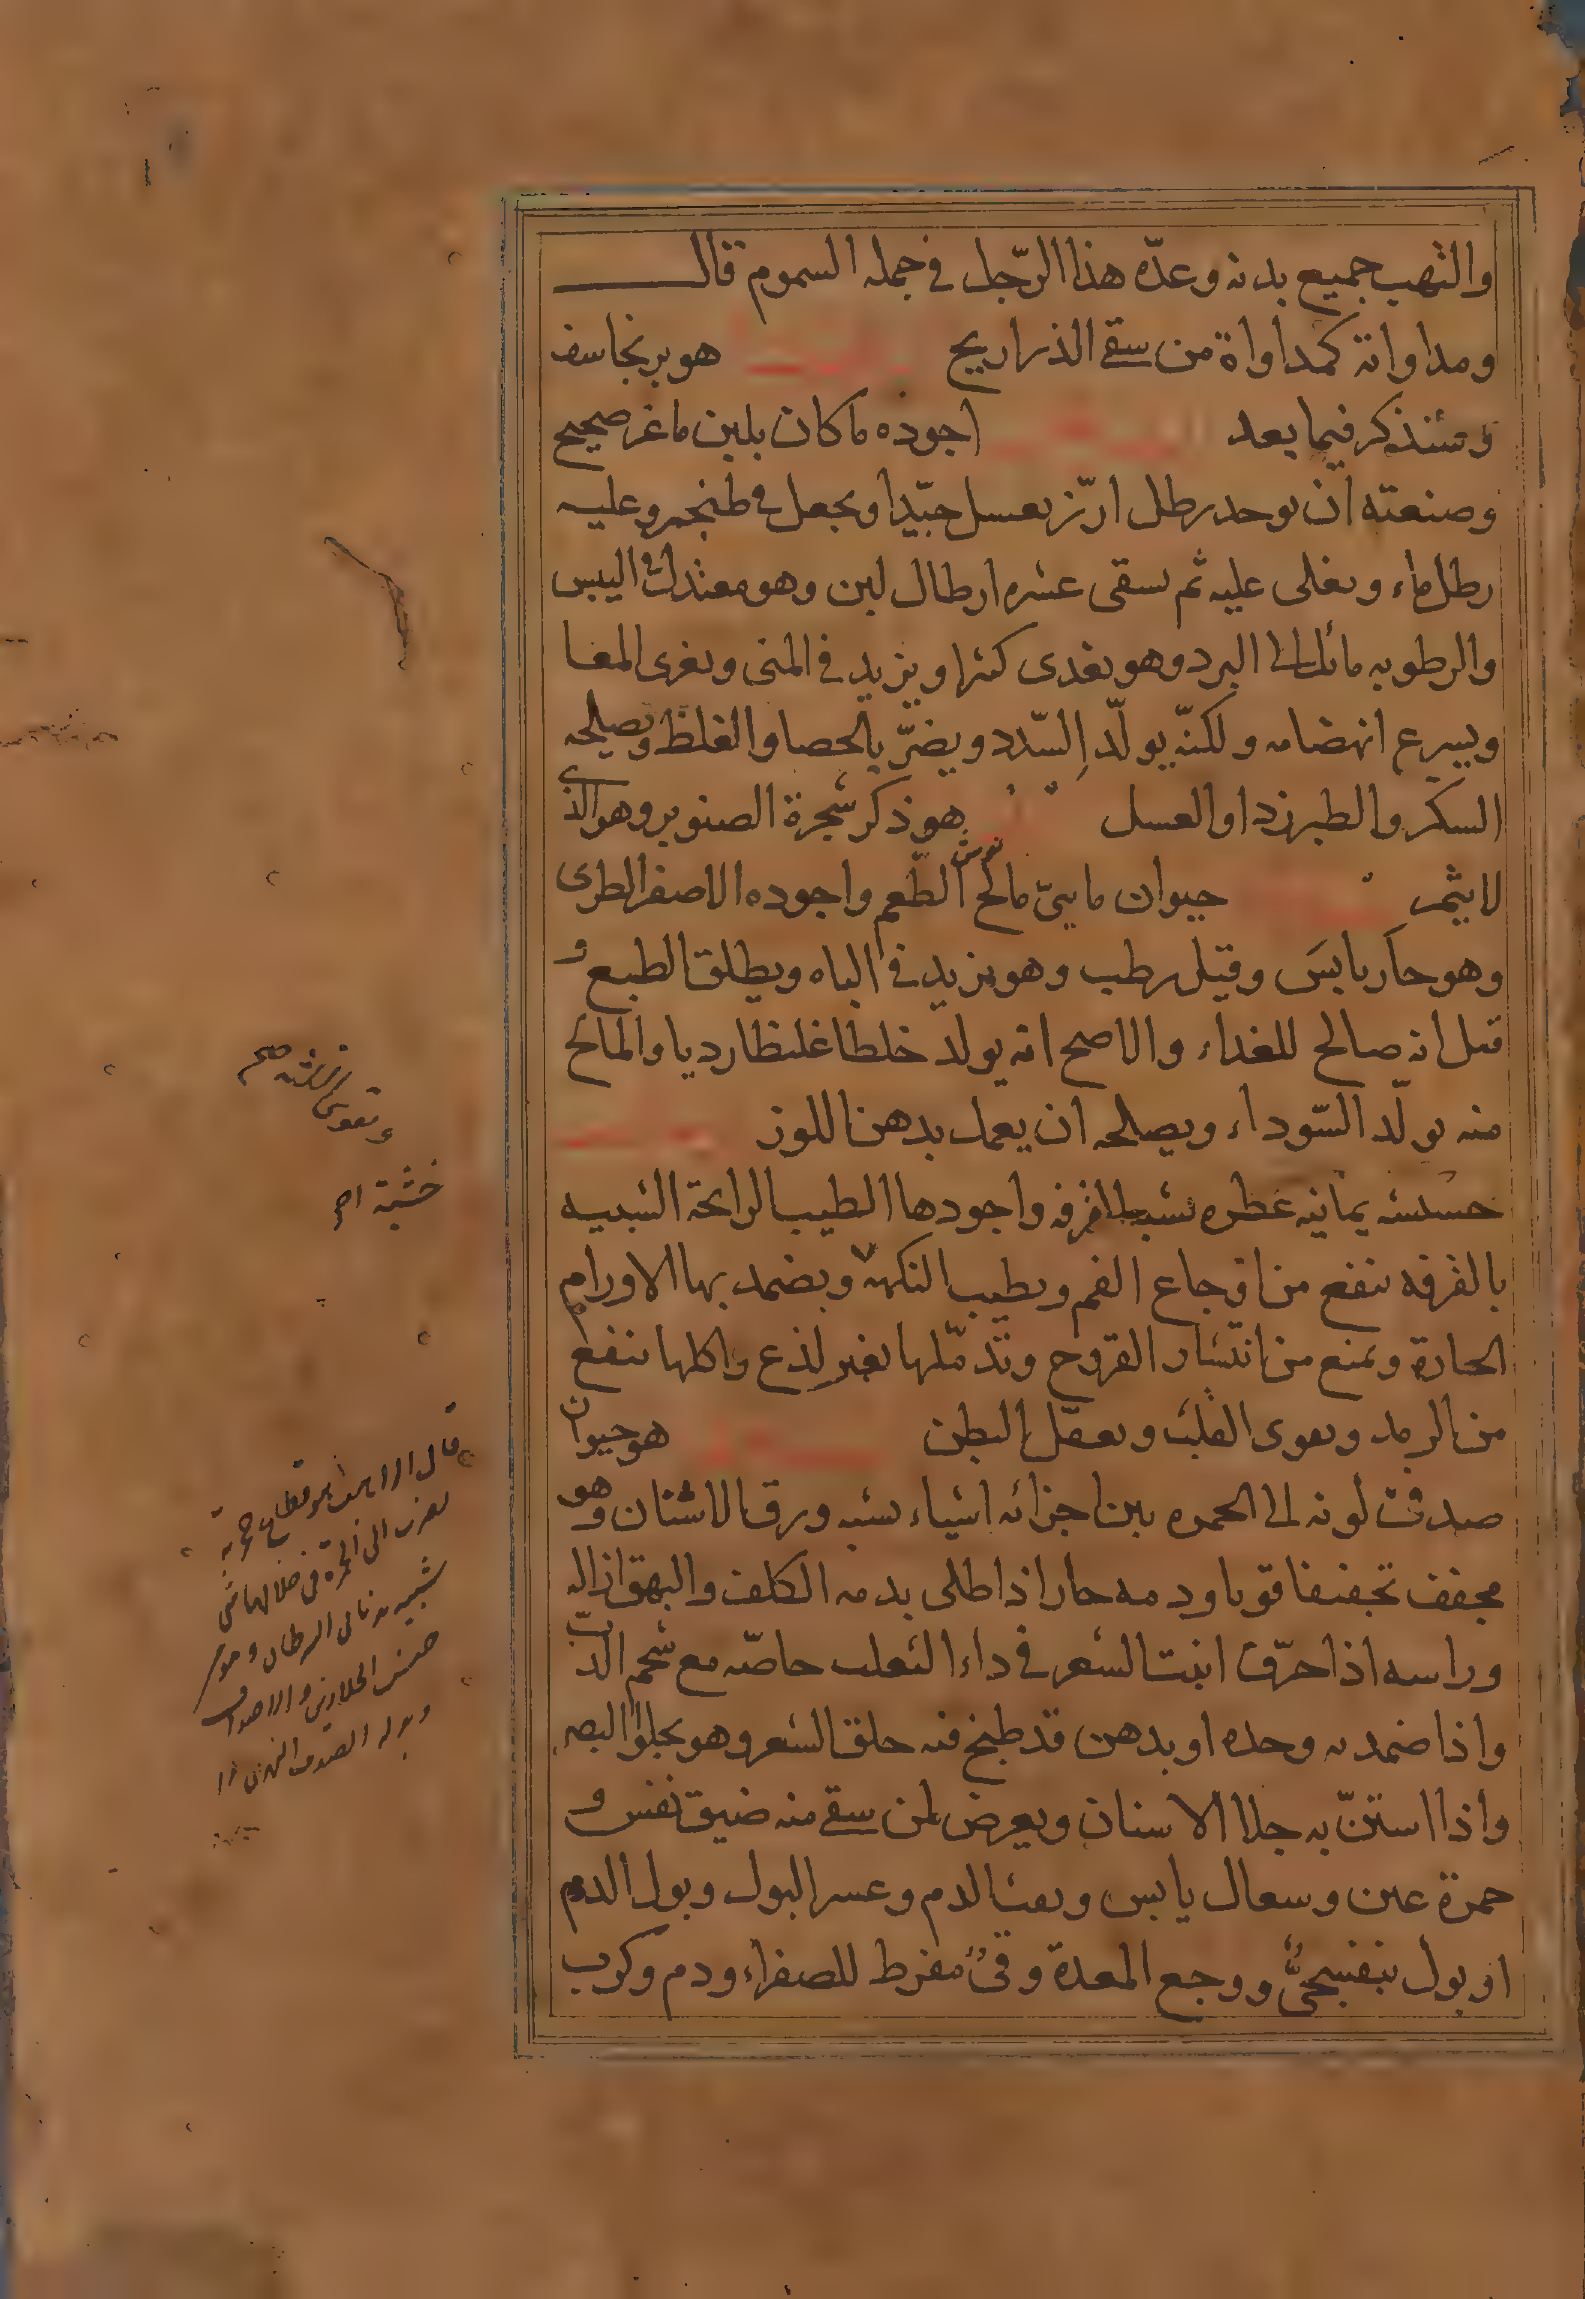 والتهب جميع بدنه وعدّه هذا الرّجل في جمله السموم قال
ومداواته كمداواة من سقي الذراريح هو برنجاسف
وسنذكر فيما بعد اجوده ما كان بلبن ماعز صحيح
وصنعته ان يوحد رطل ارّز يغسل جيّدا ويجعل في طنجير وعليه
رطل ماء ويغلى عليه ثم يسقى عشره ارطال لبن وهو معتدل في اليبس
والرطوبه مائل الى البرد وهو يغدى كثيرا ويزيد في المنى ويغرى المعا
ويسرع انهضامه ولكنّه يولّد السّدد ويضرّ بالحصا والغلظ ويصلحه
السكر والطبرزد او العسل هو ذكر شجرة الصنوبر وهو الذي
لا يثمر حيوان مايىّ مالح الطّعم واجوده الاصفر الطرى
وهو حار يابس وقيل رطب وهو يزيد في الباه ويطلق الطبع و
قيل انه صالح للغداء والاصح انه يولد خلطا غليظا رديا والمالح
منه يولّد السّوداء ويصلحه ان يعمل بدهن اللوز
حشيشه يمانيه عطره تشبه القرفه واجودها الطيب الرايحة الشبيه
بالقرفه ينفع من اوجاع الفم ويطيب النكهه ويضمد بها الاورام
الحارة ويمنع من انتشار القروح وتدمّلها بغير لذع واكلها ينفع
من الرمد ويقوى القلب ويعقل البطن هو حيوان
صدفى لونه الى الحمره بين اجزائه اشياء تشبه ورق الاشنان وهو
مجفف تجفيفا قويا ودمه حار اذا طلى بدمه الكلف والبهق ازاله
وراسه اذا حرّق انبت الشعر في داء الثعلب خاصّه مع شحم الدبّ
واذا ضمد به وحده او بدهن قد طبخ فيه حلق الشعر وهو يجلوا البصر
واذا استنّ به جلا الاسنان ويعرض لمن سقي منه ضيق نفس و
حمرة عين وسعال يابس ونفث الدم وعسر البول وبول الدم
او بول بنفسجىّ ووجع المعدة وقئ مفرط للصفراء ودم وكرب
خشبة